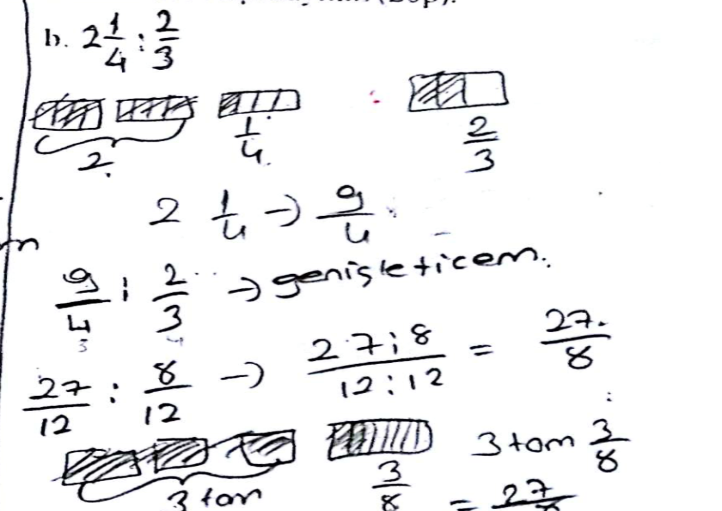 b. 2 1/4 : 2/3
2 1/4 : 2/3
2 1/4 -> 9/4
9/4 : 2/3 -> genişleticem.
3 4
27/12 : 8/12 -> 27:8/12:12 = 27/8
3 tam 3/8 3 tam 3/8
= 27